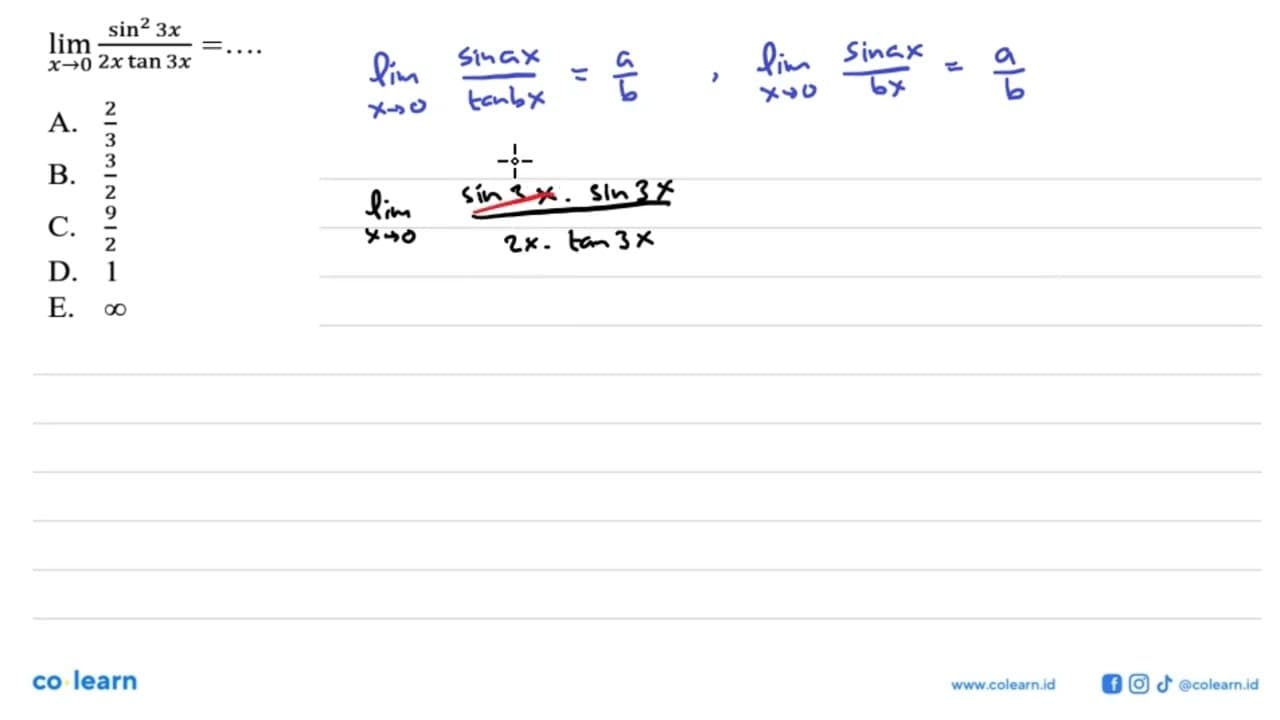 lim x→0 sin² 3x / 2x tan 3x = ....
A. 2/3
B. 3/2
C. 9/2
D. 1
E. ∞
lim x→0 sin ax / tan bx = a/b , lim x→0 sin ax / bx = a/b
lim x→0 sin 3x . sin 3x / 2x . tan 3x
co learn
www.colearn.id @colearn.id